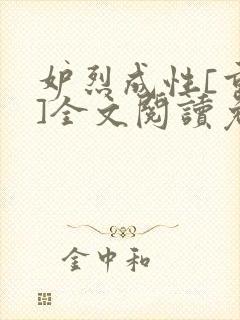 妒烈成性[重
]全文閱讀免
金中和